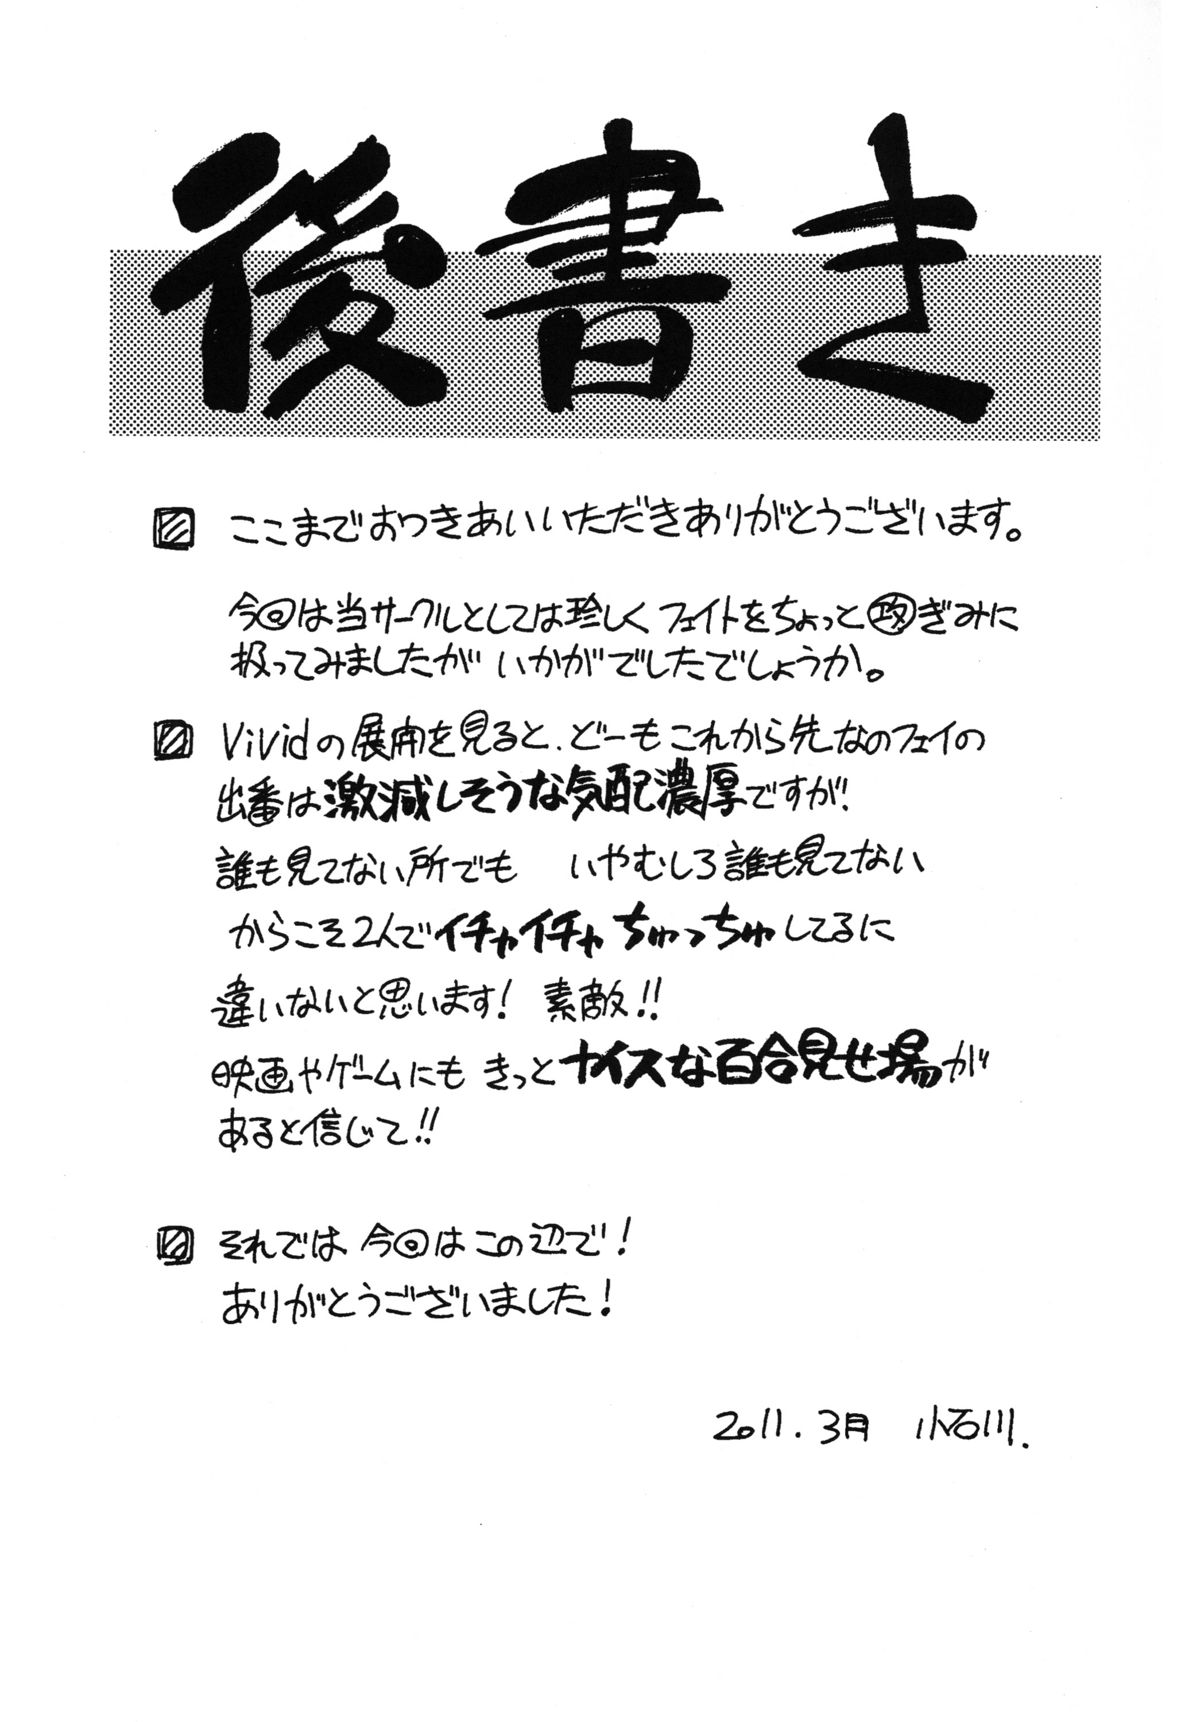 後書き
ここまでおつきあいいただきありがとうございます。
今回は当サークルとしては珍しくフェイトをちょっと攻ぎみに
扱ってみましたが いかがでしたでしょうか。
Vividの展開を見ると、どーもこれから先なのフェイの
出番は激減しそうな気配濃厚ですが!
誰も見てない所でも いやむしろ誰も見てない
からこそ2人でイチャイチャちゅっちゅしてるに
違いないと思います! 素敵!!
映画やゲームにも きっとナイスな百合見せ場が
あると信じて!!
それでは 今回はこの辺で!
ありがとうございました!
2011.3月 小石川.